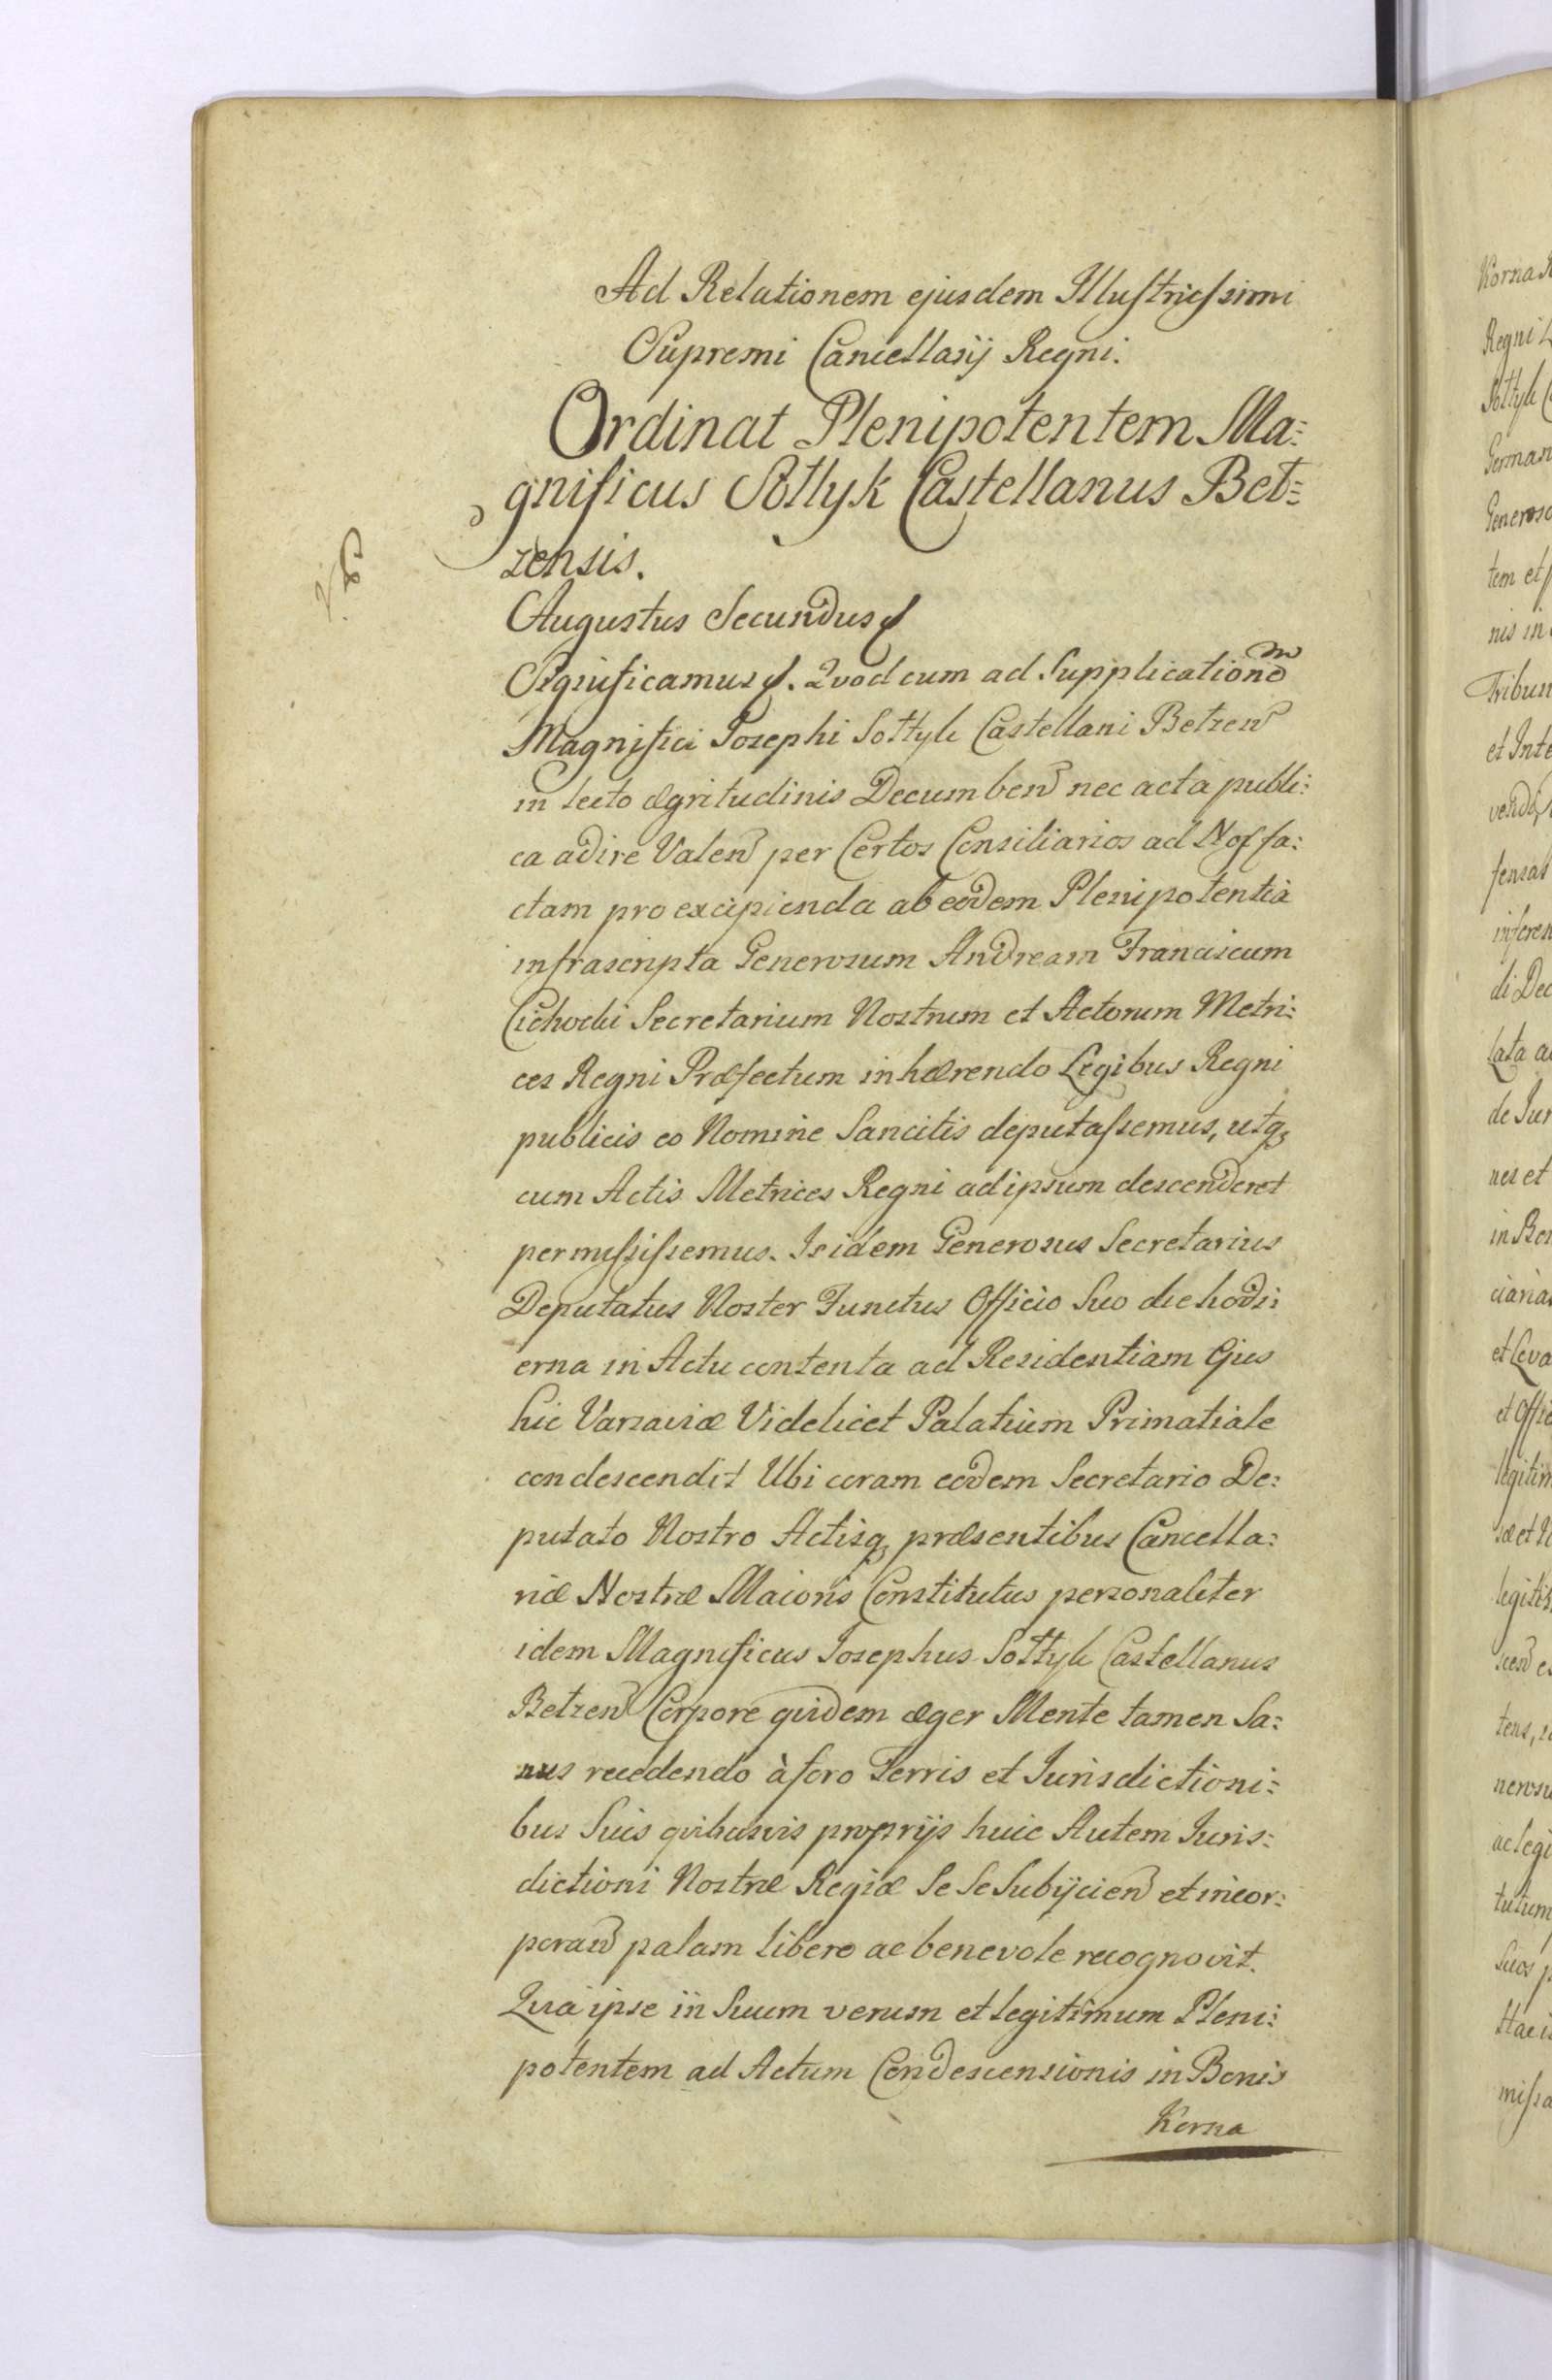 Ad Relationem ejusdem Illustrissimi
Supremi Cancellarij Regni.
Ordinat Plenipotentem Ma:
gnificus Sottyk Castellanus Bet:
zensis.
Augustus Secundus
Significamus. Quod cum ad Supplicationem
Magnifici Josephi Sottyk Castellani Betzen
in lecto ægritudinis Decumben nec acta publi:
ca adire Valen per Certos Consiliarios ad Nos fa:
ctam pro excipienda ab eodem Plenipotentia
infrascripta Generosum Andream Franciscum
Cichocki Secretarium Nostrum et Actorum Metri:
ces Regni Præfectum inhærendo Legibus Regni
publicis eo Nomine Sancitis deputassemus, utq
cum Actis Metrices Regni ad ipsum descenderet
permissisemus. Is idem Generosus Secretarius
Deputatus Noster Functus Officio Suo die hodi:
erna in Actu contenta ad Residentiam Ejus
hic Varsaviæ Videlicet Palatium Primatiale
condescendit Ubi coram eodem Secretario De:
putato Nostro Actisq præsentibus Cancella:
riæ Nostræ Maioris Constitutus personaliter
idem Magnificus Josephus Sottyk Castellanus
Betzen Corpore quidem æger Mente tamen Sa:
nus recedendo à foro Terris et Jurisdictioni:
bus Suis quibusvis proprijs huic Autem Juris:
dictioni Nostræ Regiæ Se Se Subijcien et incor:
poran palam libere ac benevole recognovit.
Quia ipse in Suum verum et legitimum Pleni:
potentem ad Actum Condescensionis in Bonis
Korna
Regni
Sottyk
German
Generoso
tem et
nis in
Tribun
et Inte